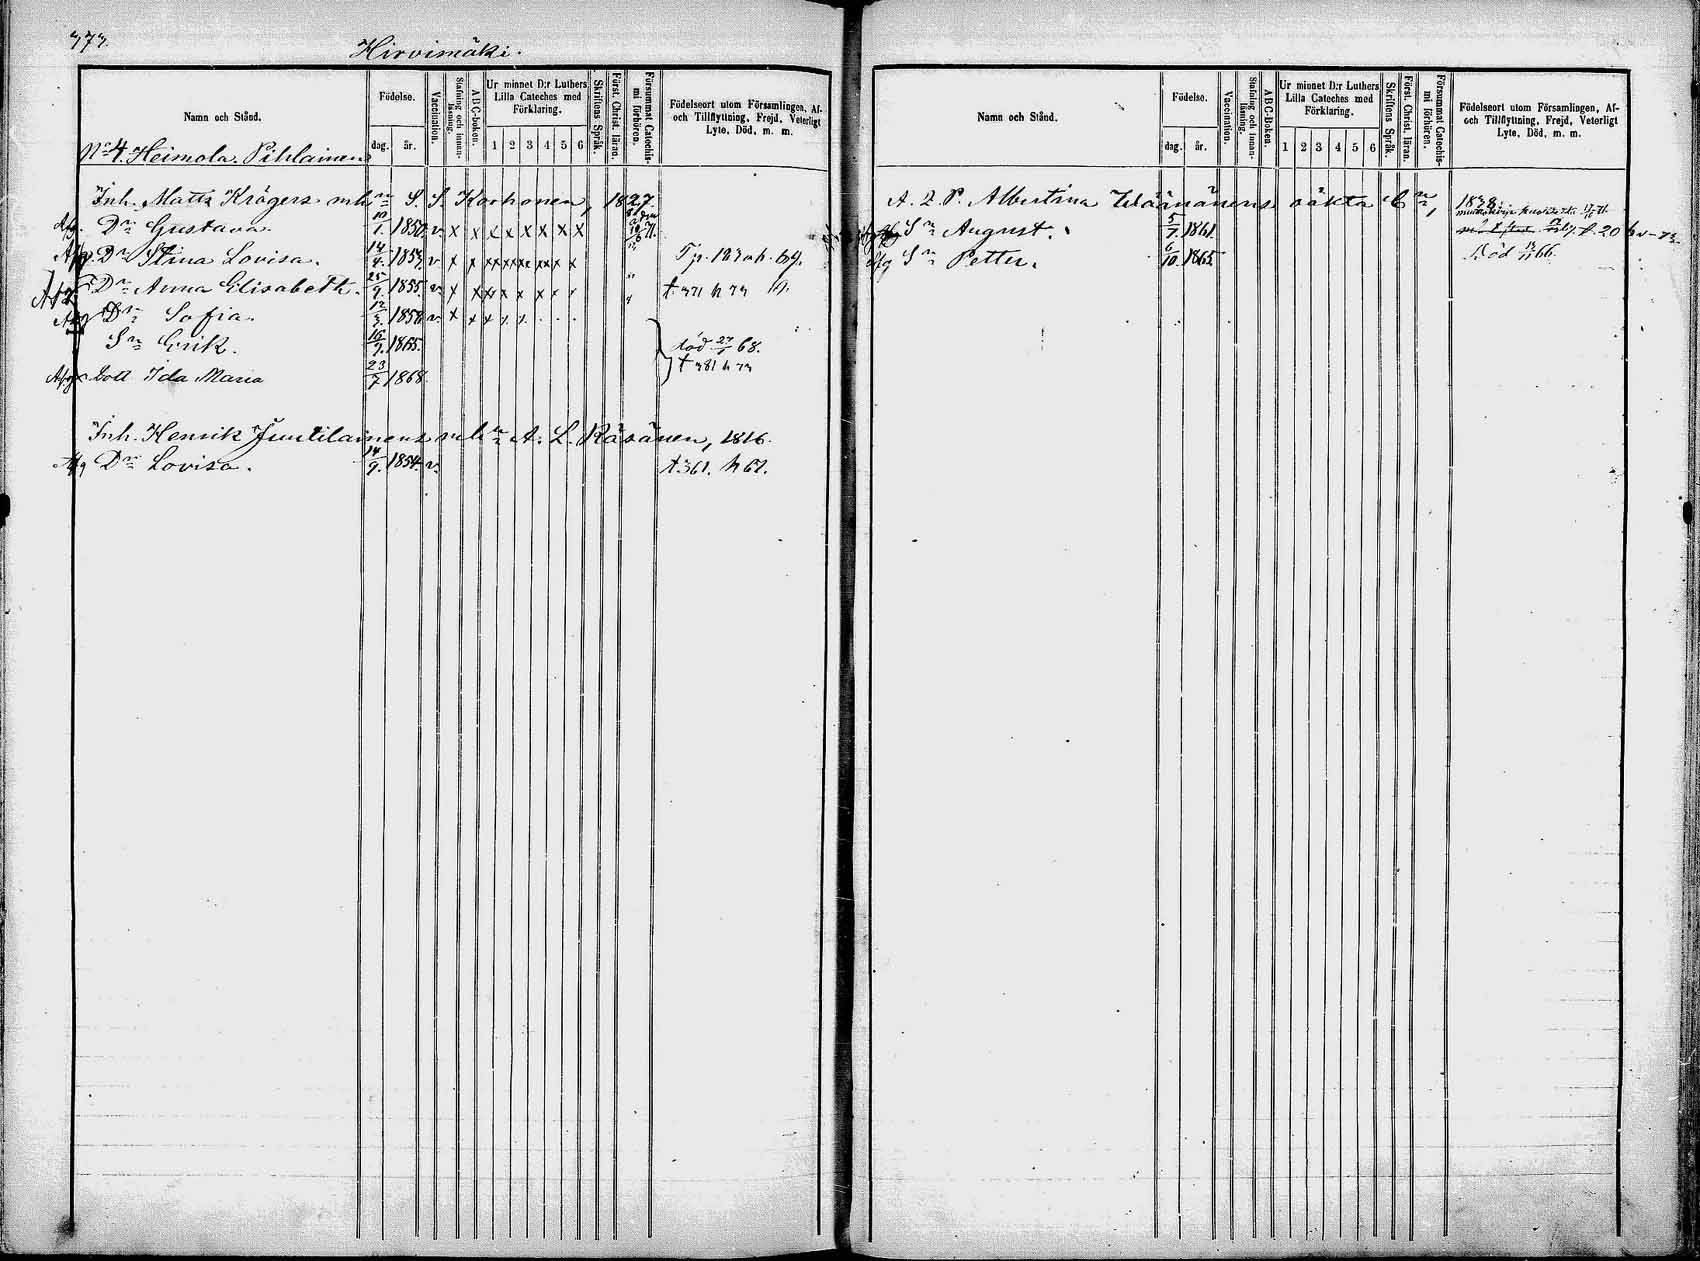 373.
Hirvimäki.
Namn och Stånd.
Födelse.
dag.
år.
Vaccination.
Stafning och innanläsning.
ABC-boken.
Ur minnet D:r Luthers Lilla Cateches med Förklaring.
1 2 3 4 5 6
Skriftens Språk.
Först. Christ. läran.
Försummat Catechismi förhören.
Födelseort utom Församlingen, Af- och Tillflyttning, Frejd, Veterligt Lyte, Död, m. m.
No 4. Heimola. Pihlainen
Inh. Matts Krögers S. S. Korhonen, 1827.
Afg. Dr Gustava. 10/1. 1850. v. x x x x x x x x
Afg. Dr Stina Lovisa. 14/4. 1853. v x x xx xx x xx x x 69.
Afg. Dr Anna Elisabeth. 25/9. 1855. v. x x xx x x x t. 371 h 73
Afg Dr Sofia. 12/3. 1858. v. x x x x x
Sn Erik. 16/9. 1865. död 27/1 68.
Afg Dott Ida Maria 23/7 1868. t 381 h 73
Inh. Henrik Juutilainens A. L. Räsänen, 1816.
Afg Dr Lovisa. 14/9. 1854. v. t. 361. h 67.
Namn och Stånd.
Födelse.
dag.
år.
Vaccination.
Stafning och innanläsning.
ABC-boken.
Ur minnet D:r Luthers Lilla Cateches med Förklaring.
1 2 3 4 5 6
Skriftens Språk.
Först. Christ. läran.
Försummat Catechismi förhören.
Födelseort utom Församlingen, Af- och Tillflyttning, Frejd, Veterligt Lyte, Död, m. m.
A. Q. P. Albertina Wäänänens oäkta 1838.
Afg Sn August. 5/7. 1861. t. 20
Afg Sn Petter. 6/10. 1865. Död 12/11 66.